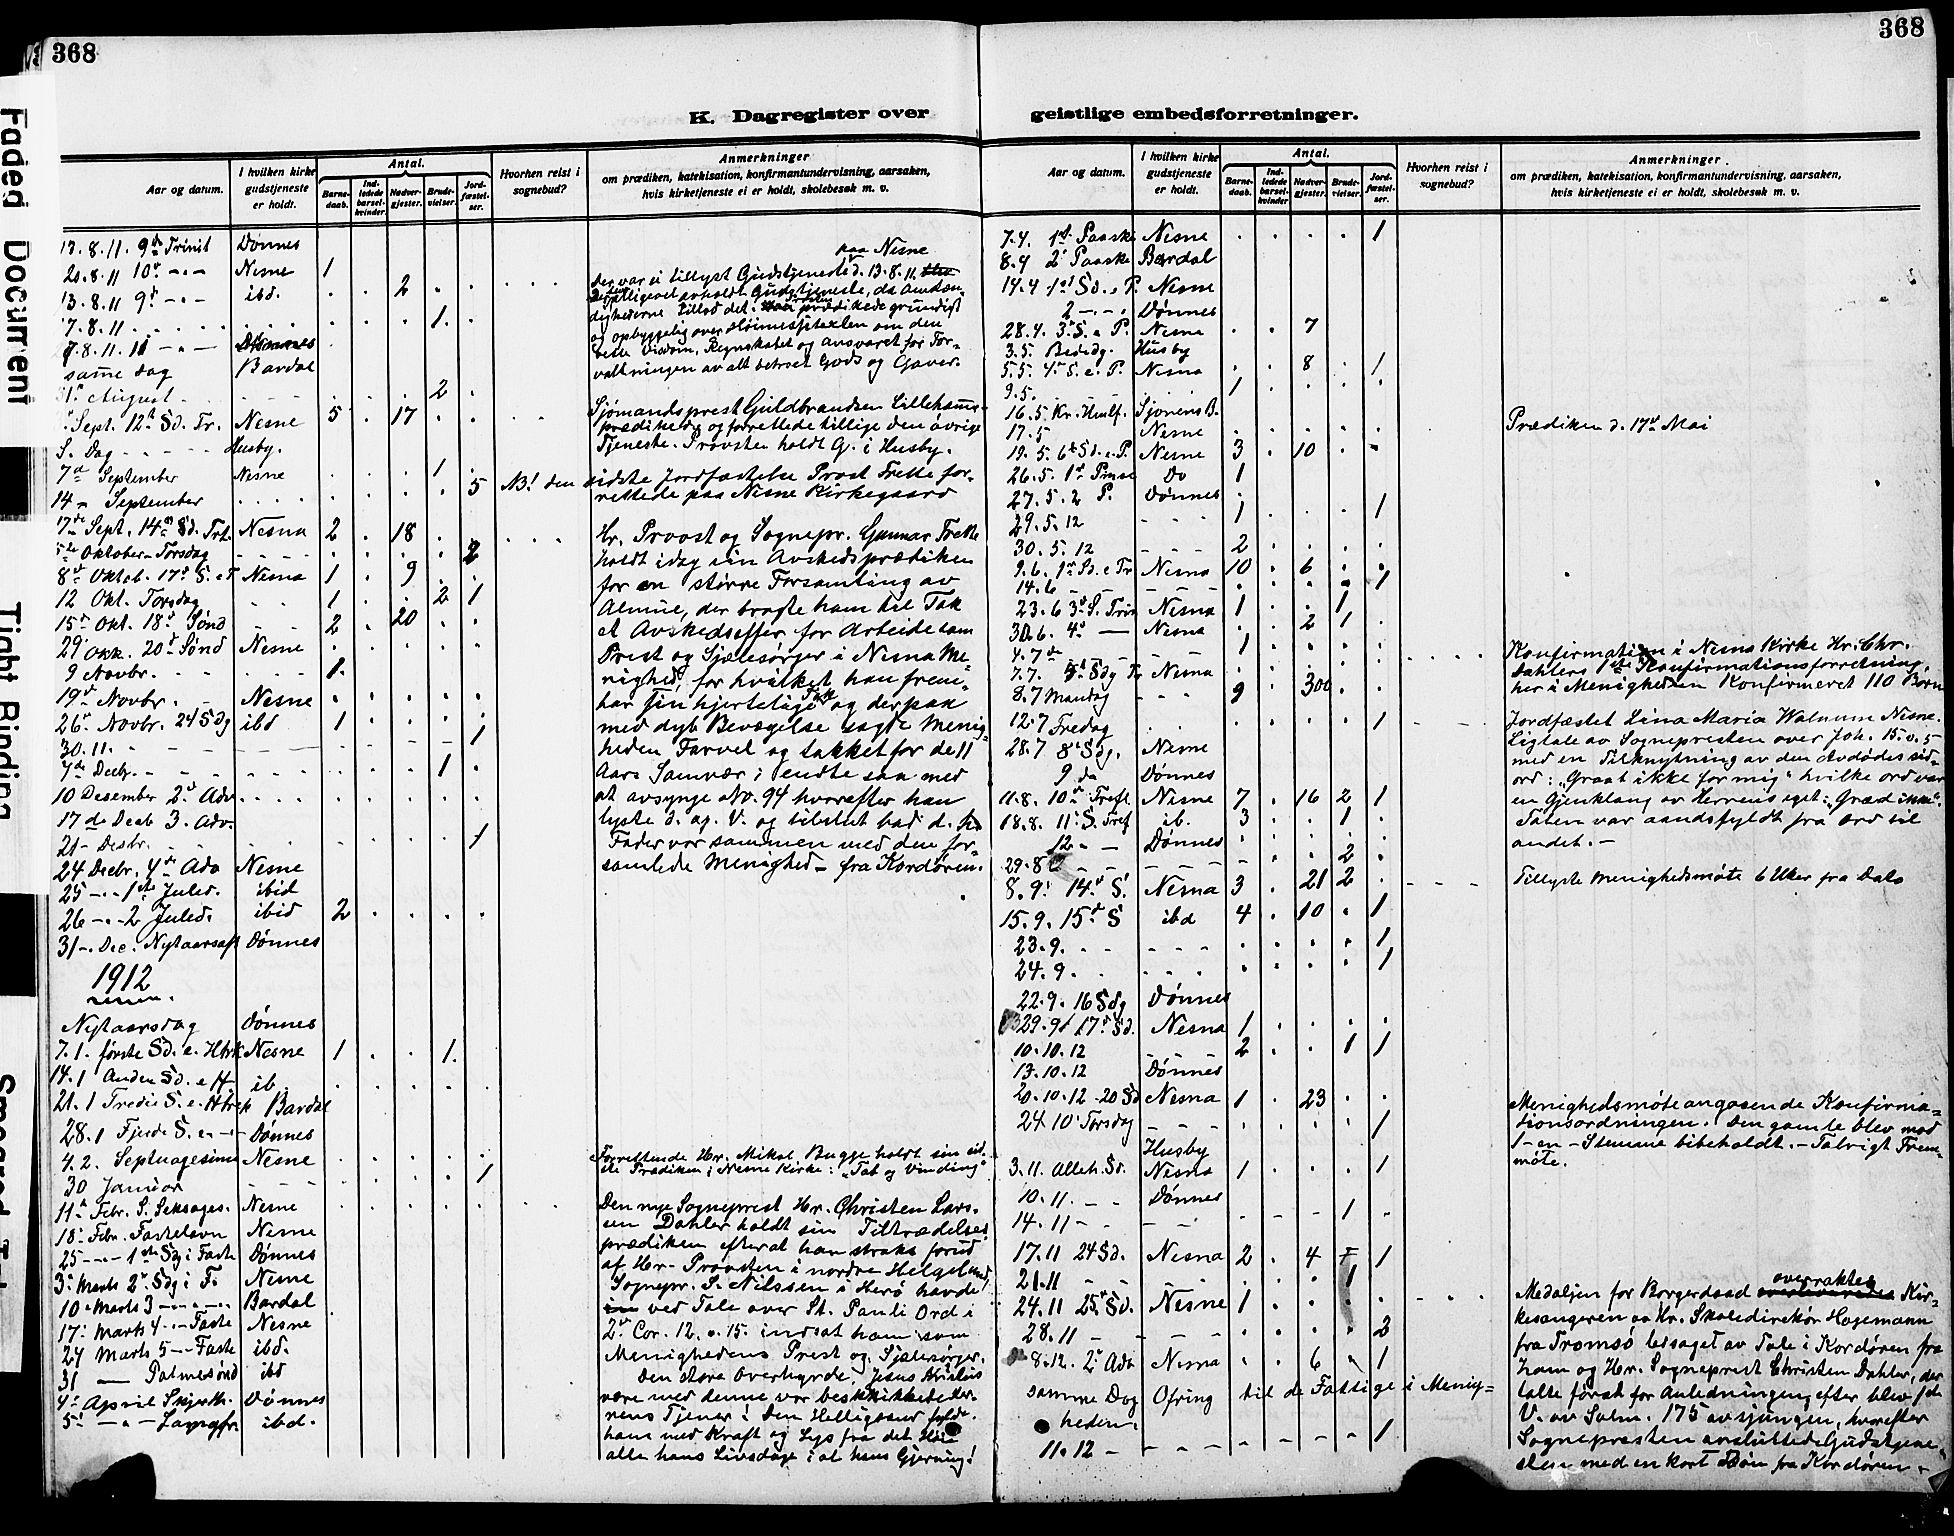 368
368
Faded Document
Tight Binding
K. Dagregister over geistlige embedsforretninger.
Aar og datum.
I hvilken kirke gudstjeneste er holdt.
Antal.
Barnedaab.
Indledede barselkvinder.
Nadvergjester.
Brudevielser.
Jordfæstelser.
Hvorhen reist i sognebud?
Anmerkninger
om prædiken, katekisation, konfirmantundervisning, aarsaken,
hvis kirketjeneste ei er holdt, skolebesøk m. v.
13.8.11. 9de Trinit Dønnes
20.8.11 10de -"- Nesne 1
13.8.11 9de -"- ibd. 2
7.8.11 1
samme dag Bardal
31te August 2
Sept. 12te Sd. Tr. Nesne 5 17
S. Dag Husby.
7de September Nesne 1
14 - September 5
17de Sept. 14de Sd. Trt. Nesna 2 18
5te Oktober - Torsdag 2
8de Oktob. 17de S. e T Nesna 1 9
12 Okt. Torsdag 1 2 1
15de Okt. 18de Sønd 2 20
29 Okt. 20de Sønd Nesne
9 Novbr. 1
19de Novbr. Nesne
26de Novbr. 24 Sdg ibd 1
30.11. 1
7de Decbr. 1
10 Desember 2den Adv
17de Decb 3. Adv.
21 - Desbr. 1
24 Decbr. 4de Adv Nesne
25 -"- 1ste Juled. ibid
26 -"- 2 Juled. ibid 2
31 -. Dec. Nytaarsaft Dønnes
1912
Nytaarsdag Dønnes
7.1. første Sd. e. Htrk Nesne 1 1
14.1 Anden Sd. e H ib
21.1 Tredie S. e. Htrek Bardal
28.1 Fjerde S. e. -"- Dønnes
4.2. Septuagesima Nesne
30 Januar 1
11te Febr. S. Seksages. Nesne
18de Febr. Fastelavn Nesne
25 -"- 1ste Sdg i Faste Dønnes
3de Marts 2den Sdg i F. Nesne
10 Marts 3 -"- Bardal
17de Marts 4 -"- Faste Nesne
24 Marts 5 -"- Faste ibd.
31 — Palmesønd ibd
4de April Skjærth. Dønnes
5te -"- Langfr. ibd.
paa Nesne
Der var ei tillyst Gudstjeneste d. 13.8.11
avholdt Gudstjeneste, da Omstæn-
dighederne tillod det. prædikede grundigt
og opbyggelig over Høimessetexten om den
rette Visdom, Regnskabet og Ansvaret for For-
valtningen av alt betroet Gods og Gaver.
Sjømandsprest Guldbrandsen Lillehamr-
prædikede og forrettede tillige den øvrige
Tjeneste. Provsten holdt G. i Husby.
NB! den sidste Jordfæstelse Prost Frette for-
rettede paa Nesne Kirkegaard
Hr. Provst og Sognepr. Gunnar Frette
holdt idag sin Avskedsprædiken
for en større Forsamling av
Almue, der bragte ham til Tak
et Avskedsoffer for Arbeide som
Prest og Sjælesørger i Nesna Me-
nighed, for hvilket han frem-
bar sin hjertelige Tak og derpaa
med dyb Bevægelse sagte Menig-
heden Farvel og takket for de 11
Aars Samvær; endte saa med
at avsynge No. 94 hvorefter han
lyste d. ap. V. og tilslut bad d.
Fader vor sammen med den for-
samlede Menighed - fra Kordøren.
Forrettende Hr. Mikal Bugge holdt sin sid-
ste Prædiken i Nesne Kirke: „Tab og Vinding"
Den nye Sogneprest Hr. Christen Lars-
sen Dahler holdt sin Tiltrædelses
prædiken efterat han straks forud
af Hr. Provsten i nordre Helgeland,
Sognepr. S. Nilssen i Herø havde
ved Tale over St. Pauli Ord i
2den Cor. 12. v. 15. indsat ham som
Menighedens Prest og Sjælesørger.
Den store Overhyrde, Jesus Kristus
være med denne vor beskikkede Her-
rens Tjener! Den Helligaand fylde
ham med Kraft og Lys fra det Høie
alle hans Livsdage i al hans Gjerning!
Aar og datum.
I hvilken kirke gudstjeneste er holdt.
Antal.
Barnedaab.
Indledede barselkvinder.
Nadvergjester.
Brudevielser.
Jordfæstelser.
Hvorhen reist i sognebud?
Anmerkninger.
om prædiken, katekisation, konfirmantundervisning, aarsaken,
hvis kirketjeneste ei er holdt, skolebesøk m. v.
7.4. 1ste Paaske Nesne 1
8.4 2 Paaske Bardal
14.4 1ste Sd. e P. Nesne
2 -"- Dønnes
28.4. 3de S. e P. Nesna 7
3.5. Bededg. Husby
5.5. 4de S. e. P. Nesna 8 1
9.5. 1
16.5. Kr. Himlf. Sjonens B.
17.5 Nesne
19.5. 6te Sd. e. P. Nesne 3 10
26.5. 1ste Pinse Do 1
27.5. 2 P. Dønnes
29.5.12 1 1
30.5.12 2
9.6. 1ste Sd. e Tr Nesna 10 6
14.6 1
23.6 3de S. Trin Nesna 1 1
30.6. 4de — Nesna 2 1
4.7de 1
7.7. 5te Sdg Tr Nesna
8.7 Mandag 9 300
12.7 Fredag 1
28.7 8de Sdg. Nesne
9 da Dønnes
11.8. 10de Tref. Nesne 7 16 2 1
18.8. 11te S. Tref ib. 3 1
12 - Dønnes
29.8 2
8.9. 14de S. Nesna 3 21 2
15.9. 15de S ibd 4 10 1
23.9. 1
24.9. 1
22.9. 16 Sdg Dønnes
29.9 17de Sd. Nesna 1
10.10.12 2 1 1
13.10.12 Dønnes
20.10.12 - 20 Sd Nesna 1 23
24 10 Torsdag 1
Husby
3.11. Alleh. Sd. Nesna 1 1
10.11. Dønnes
14.11 1
17.11 24 Sd. Nesna 2 4 1
21.11 1
24.11 25de Sd. Nesne 1
28.11 2
8.12. 2den Adv Nesna 6 1
samme Dag Ofring til de Fattige i Menig-
heden.
11.12 1
Prædiken d. 17de Mai
Konfirmation i Nesna Kirke Hr. Chr.
Dahlers 1ste Konfirmationsforretning
her i Menigheden Konfirmeret 110 Børn
Jordfæstet Lina Maria Walnum Nesne.
Ligtale av Sognepresten over Joh. 15. v. 5
med en Tilknytning av den Avdødes sid-
ord: „Graat ikke for mig" hvilke ord var
en Gjenklang av Herrens eget: „Græd ikke".
Talen var aandsfyldt fra Ord til
andet. -
Tillyste Menighedsmøte 6 Uker fra Dato
Menighedsmøte angaaende Konfirma-
tionsordningen. Den gamle blev med
1 - en - Stemme bibeholdt. - Talrigt Frem-
møte.
Medaljen for Borgerdaad overraktes Kir-
kesangeren av Hr. Skoledirektør Hagemann
fra Tromsø ledsaget av Tale i Kordøren fra
ham og Hr. Sogneprest Christen Dahler, der
talte først for Anledningen, efter blev 1ste
V. av Salm. 175 avsjungen, hvorefter
Sognepresten avsluttede Gudstjene-
sten med en kort Bøn fra Kordøren.